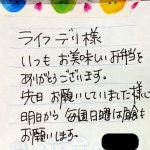 ライフデリ様
いつもお美味しいお弁当を
ありがとうございます。
先日お願いしていました様に
明日から毎週日曜は白飯も
お願いします。